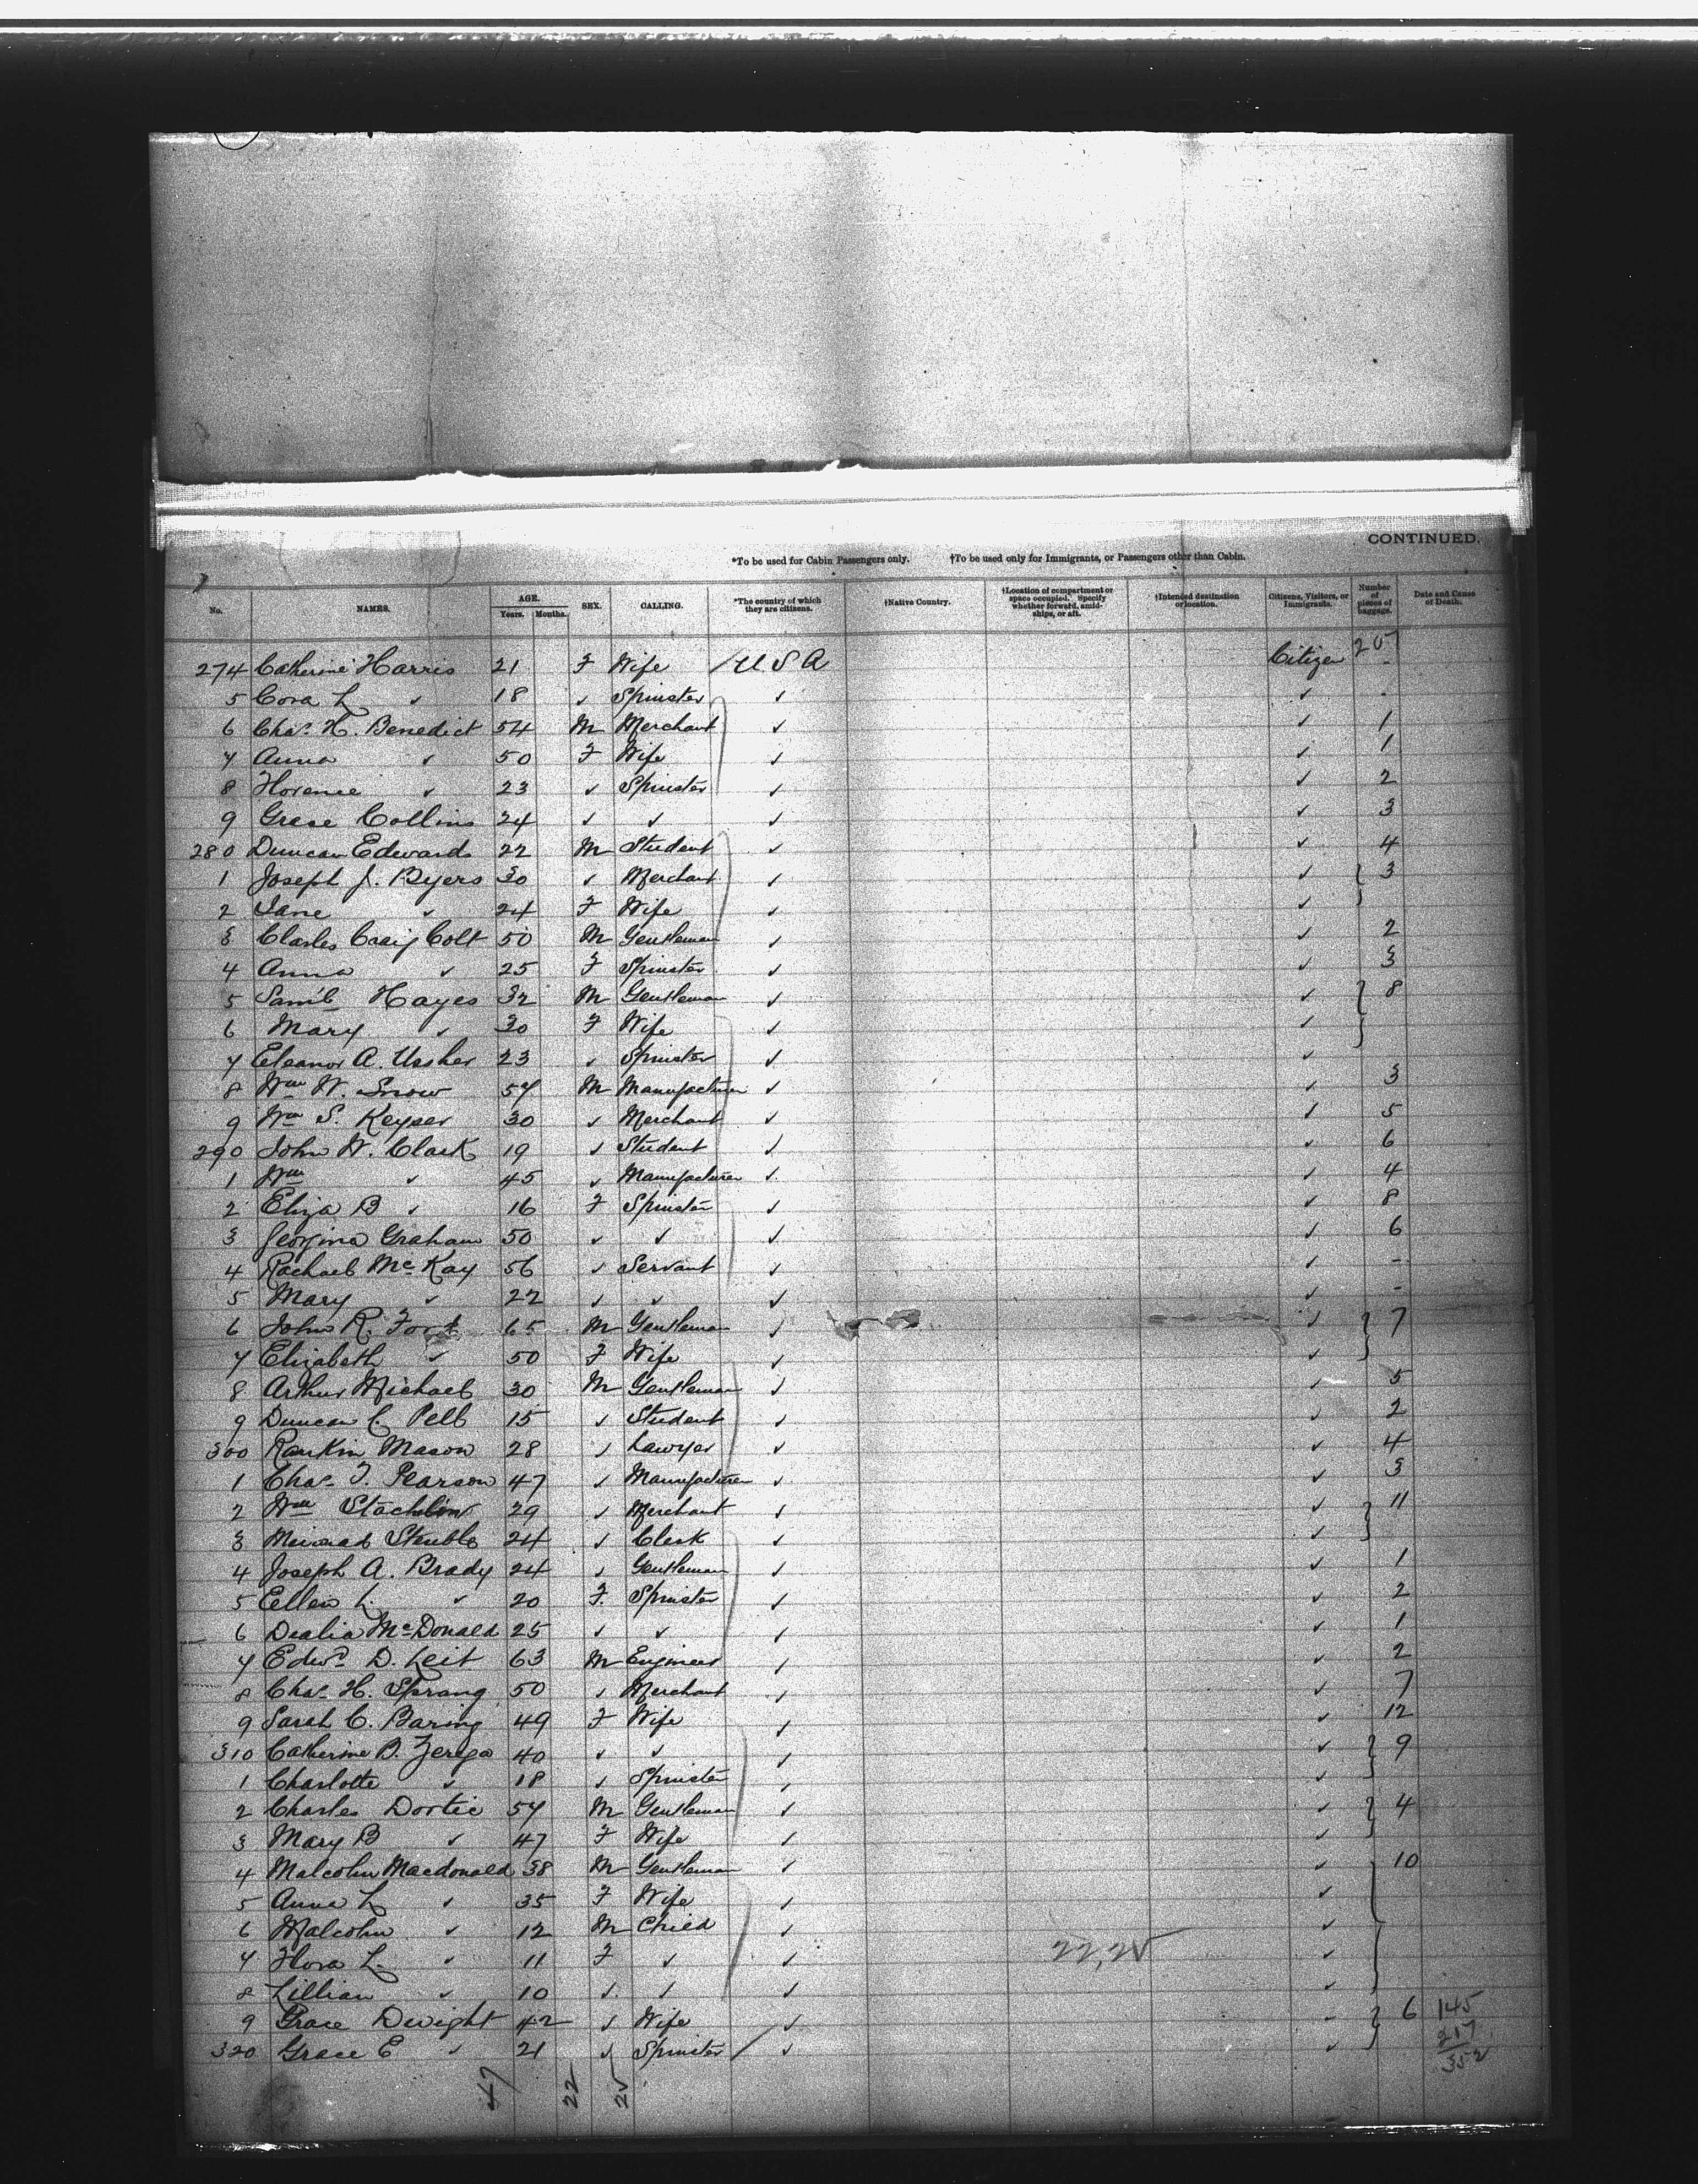 CONTINUED.
*To be used for Cabin Passengers only. †To be used only for Immigrants, or Passengers other than Cabin.
No. NAMES. AGE. Years. Months. SEX. CALLING. *The country of which they are citizens. †Native Country. †Location of compartment or space occupied. Specify whether forward, amidships, or aft. †Intended destination or location. Citizens, Visitors, or Immigrants. Number of pieces of baggage. Date and Cause of Death.
20
274 Catherine Harris 21 F Wife U S A Citizen -
5 Cora L ✓ 18 ✓ Spinster ✓ ✓ -
6 Chas. H. Benedict 54 M Merchant ✓ ✓ 1
7 Anna ✓ 50 F Wife ✓ ✓ 1
8 Florence ✓ 23 ✓ Spinster ✓ ✓ 2
9 Grace Collins 24 ✓ ✓ ✓ ✓ 3
280 Duncan Edwards 22 M Student ✓ ✓ 4
1 Joseph J. Byers 30 ✓ Merchant ✓ ✓ 3
2 Jane ✓ 24 F Wife ✓ ✓
3 Charles Craig Colt 50 M Gentleman ✓ ✓ 2
4 Anna ✓ 25 F Spinster ✓ ✓ 3
5 Saml Hayes 32 M Gentleman ✓ ✓ 8
6 Mary ✓ 30 F Wife ✓ ✓
7 Eleanor A. Ussher 23 ✓ Spinster ✓ ✓
8 Wm W. Snow 57 M Manufacturer ✓ ✓ 3
9 Wm S. Keyser 30 ✓ Merchant ✓ ✓ 5
290 John W. Clark 19 ✓ Student ✓ ✓ 6
1 Wm ✓ 45 ✓ Manufacturer ✓ ✓ 4
2 Eliza B ✓ 16 F Spinster ✓ ✓ 8
3 Georgina Graham 50 ✓ ✓ ✓ ✓ 6
4 Rachael McKay 56 ✓ Servant ✓ ✓ -
5 Mary ✓ 22 ✓ ✓ ✓ ✓ -
6 John R. Ford 65 M Gentleman ✓ ✓ 7
7 Elizabeth ✓ 50 F Wife ✓ ✓
8 Arthur Michael 30 M Gentleman ✓ ✓ 5
9 Duncan C. Pell 15 ✓ Student ✓ ✓ 2
300 Rankin Mason 28 ✓ Lawyer ✓ ✓ 4
1 Chas. T. Pearson 47 ✓ Manufacturer ✓ ✓ 3
2 Wm Stachlin 29 ✓ Merchant ✓ ✓ 11
3 Steuble 24 ✓ Clerk ✓ ✓
4 Joseph A. Brady 24 ✓ Gentleman ✓ ✓ 1
5 Ellen L. ✓ 20 F. Spinster ✓ ✓ 2
6 Dealia McDonald 25 ✓ ✓ ✓ ✓ 1
7 Edwd. D. Leit 63 M Engineer ✓ ✓ 2
8 Chas. H. Sprang 50 ✓ Merchant ✓ ✓ 7
9 Sarah C. Baring 49 F Wife ✓ ✓ 12
310 Catherine B. Zerega 40 ✓ ✓ ✓ ✓ 9
1 Charlotte ✓ 18 ✓ Spinster ✓ ✓
2 Charles Dortic 57 M Gentleman ✓ ✓ 4
3 Mary B ✓ 47 F Wife ✓ ✓
4 Malcolm Macdonald 38 M Gentleman ✓ ✓ 10
5 Anna L ✓ 35 F Wife ✓ ✓
6 Malcolm ✓ 12 M Child ✓ ✓
7 Flora L. ✓ 11 F ✓ ✓ ✓
22,25
8 Lillian ✓ 10 ✓ ✓ ✓ ✓
9 Grace Dwight 42 ✓ Wife ✓ ✓ 6 145
217
320 Grace E ✓ 21 ✓ Spinster ✓ ✓ 352
47 22 25